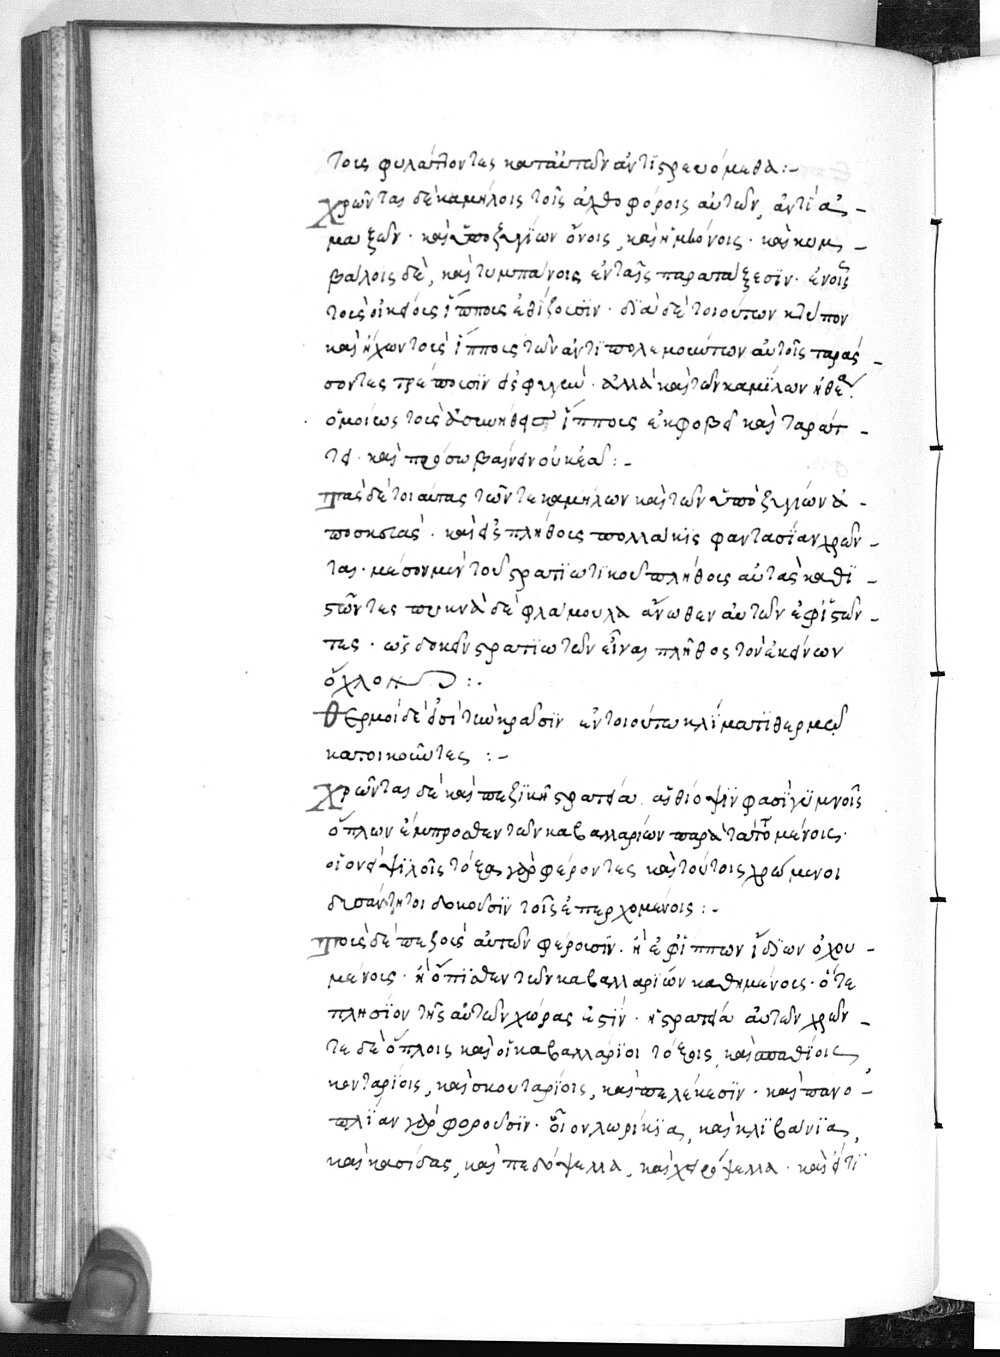 τους φυλάττοντες κατ' αὐτῶν ἀντιστρευόμεθα :-
Χρῶνται δὲ καμήλοις τοῖς ἀχθοφόροις αὐτῶν, ἀντὶ ἁ-
μαξῶν· καὶ ὑποζυγίων ὄνοις, καὶ ἡμιόνοις· καὶ κυμ-
βάλοις δὲ, καὶ τυμπάνοις ἐν ταῖς παρατάξεσϊν· ἐν οἷς
τοὺς οἰκείους ἵππους ἐθίζουσϊν· δϊὰ δὲ τοιούτων κτύπον
καὶ ἤχων τοὺς ἵππους τῶν ἀντϊπολεμούντων αὐτοῖς ταράσ-
σοντες τρέπουσϊν εἰς φυγὴν· ἀλλὰ καὶ τῶν καμΐλων ἡ θέα
ὁμοίως τοὺς ἀσυνήθεις ἵππους ἐκφοβεῖ καὶ ταράτ-
τει· καὶ πρόσω βαίνειν οὐκ ἐᾶ :-
Πὰς δὲ τοιαύτας τῶν τε καμήλων καὶ τῶν ὑποζυγίων ἀ-
ποσκευὰς· καὶ εἰς πλήθους πολλάκϊς φαντασΐαν χρῶν-
ται· μέσον μὲν τοῦ στρατϊωτϊκοῦ πλήθους αὐτὰς καθϊ-
στῶντες πυκνὰ δὲ φλάμουλα ἄνωθεν αὐτῶν ἐφϊστῶν-
τες· ὡς δοκεῖν στρατϊωτῶν εἶναι πλῆθος τὸν ἐκείνων
ὄχλον :-
Θερμοὶ δὲ εἰσὶ τὴν κρᾶσϊν ἐν τοιούτω κλίματϊ θερμῶ
κατοικοῦντες :-
Χρῶνται δὲ καὶ πεζϊκῆ στρατεία αἰθίοψϊν φασὶ γυμνοῖς
ὅπλων ἔμπροσθεν τῶν καβαλλαρίων παρατατομένοις·
οἱονεὶ ψϊλοῖς τόξα γὰρ φέροντες καὶ τούτοις χρώμενοι
δυσάντητοι δοκοῦσϊν τοῖς ἐπερχομένοις :-
Ποὺς δὲ πεζοὺς αὐτῶν φέρουσϊν· ἢ ἐφΐππων ἰδΐων ὀχου-
μένους· ἢ ὄπϊσθεν τῶν καβαλλαρΐων καθημένους· ὅτε
πλησΐον τῆς αὐτῶν χώρας ἐστϊν· ἡ στρατεία αὐτῶν χρῶν-
ται δὲ ὅπλοις καὶ οἱ καβαλλάρϊοι τόξοις, καὶ σπαθΐοις
κονταρΐοις, καὶ σκουταρΐοις, καὶ πελέκεσϊν· καὶ πανο-
πλΐαν γὰρ φοροῦσϊν· οἷον λωρίκϊα, καὶ κλϊβάνϊα,
καὶ κασίδας, καὶ πεδόψελλα, καὶ χειρόψελλα· καὶ εἴ τϊ